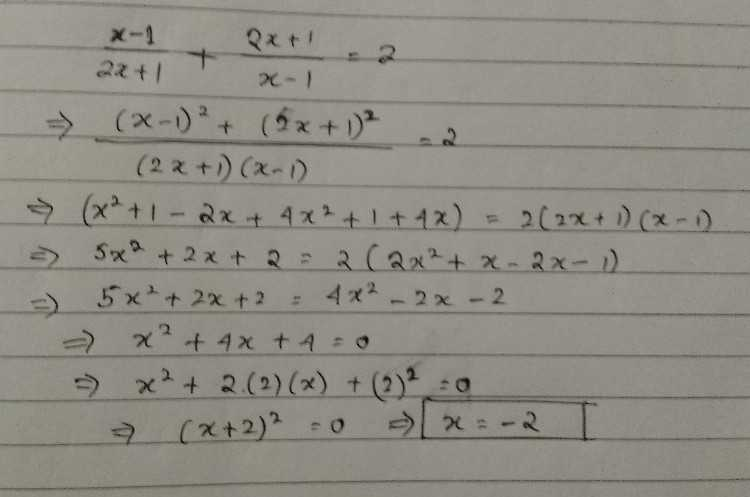 x-1/2x+1 + 2x+1/x-1 = 2
⇒ (x-1)² + (2x+1)²/(2x+1)(x-1) = 2
⇒ (x²+1-2x+4x²+1+4x) = 2(2x+1)(x-1)
⇒ 5x²+2x+2 = 2(2x²+x-2x-1)
⇒ 5x²+2x+2 = 4x²-2x-2
⇒ x²+4x+4=0
⇒ x²+2.(2)(x)+(2)²=0
⇒ (x+2)²=0 ⇒ x=-2